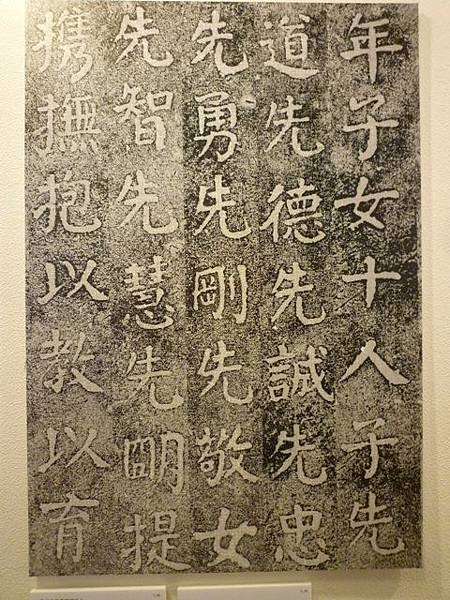 年子女十人子先
道先德先誠先忠
先勇先剛先敬女
先智先慧先朙提
携撫抱以教以育